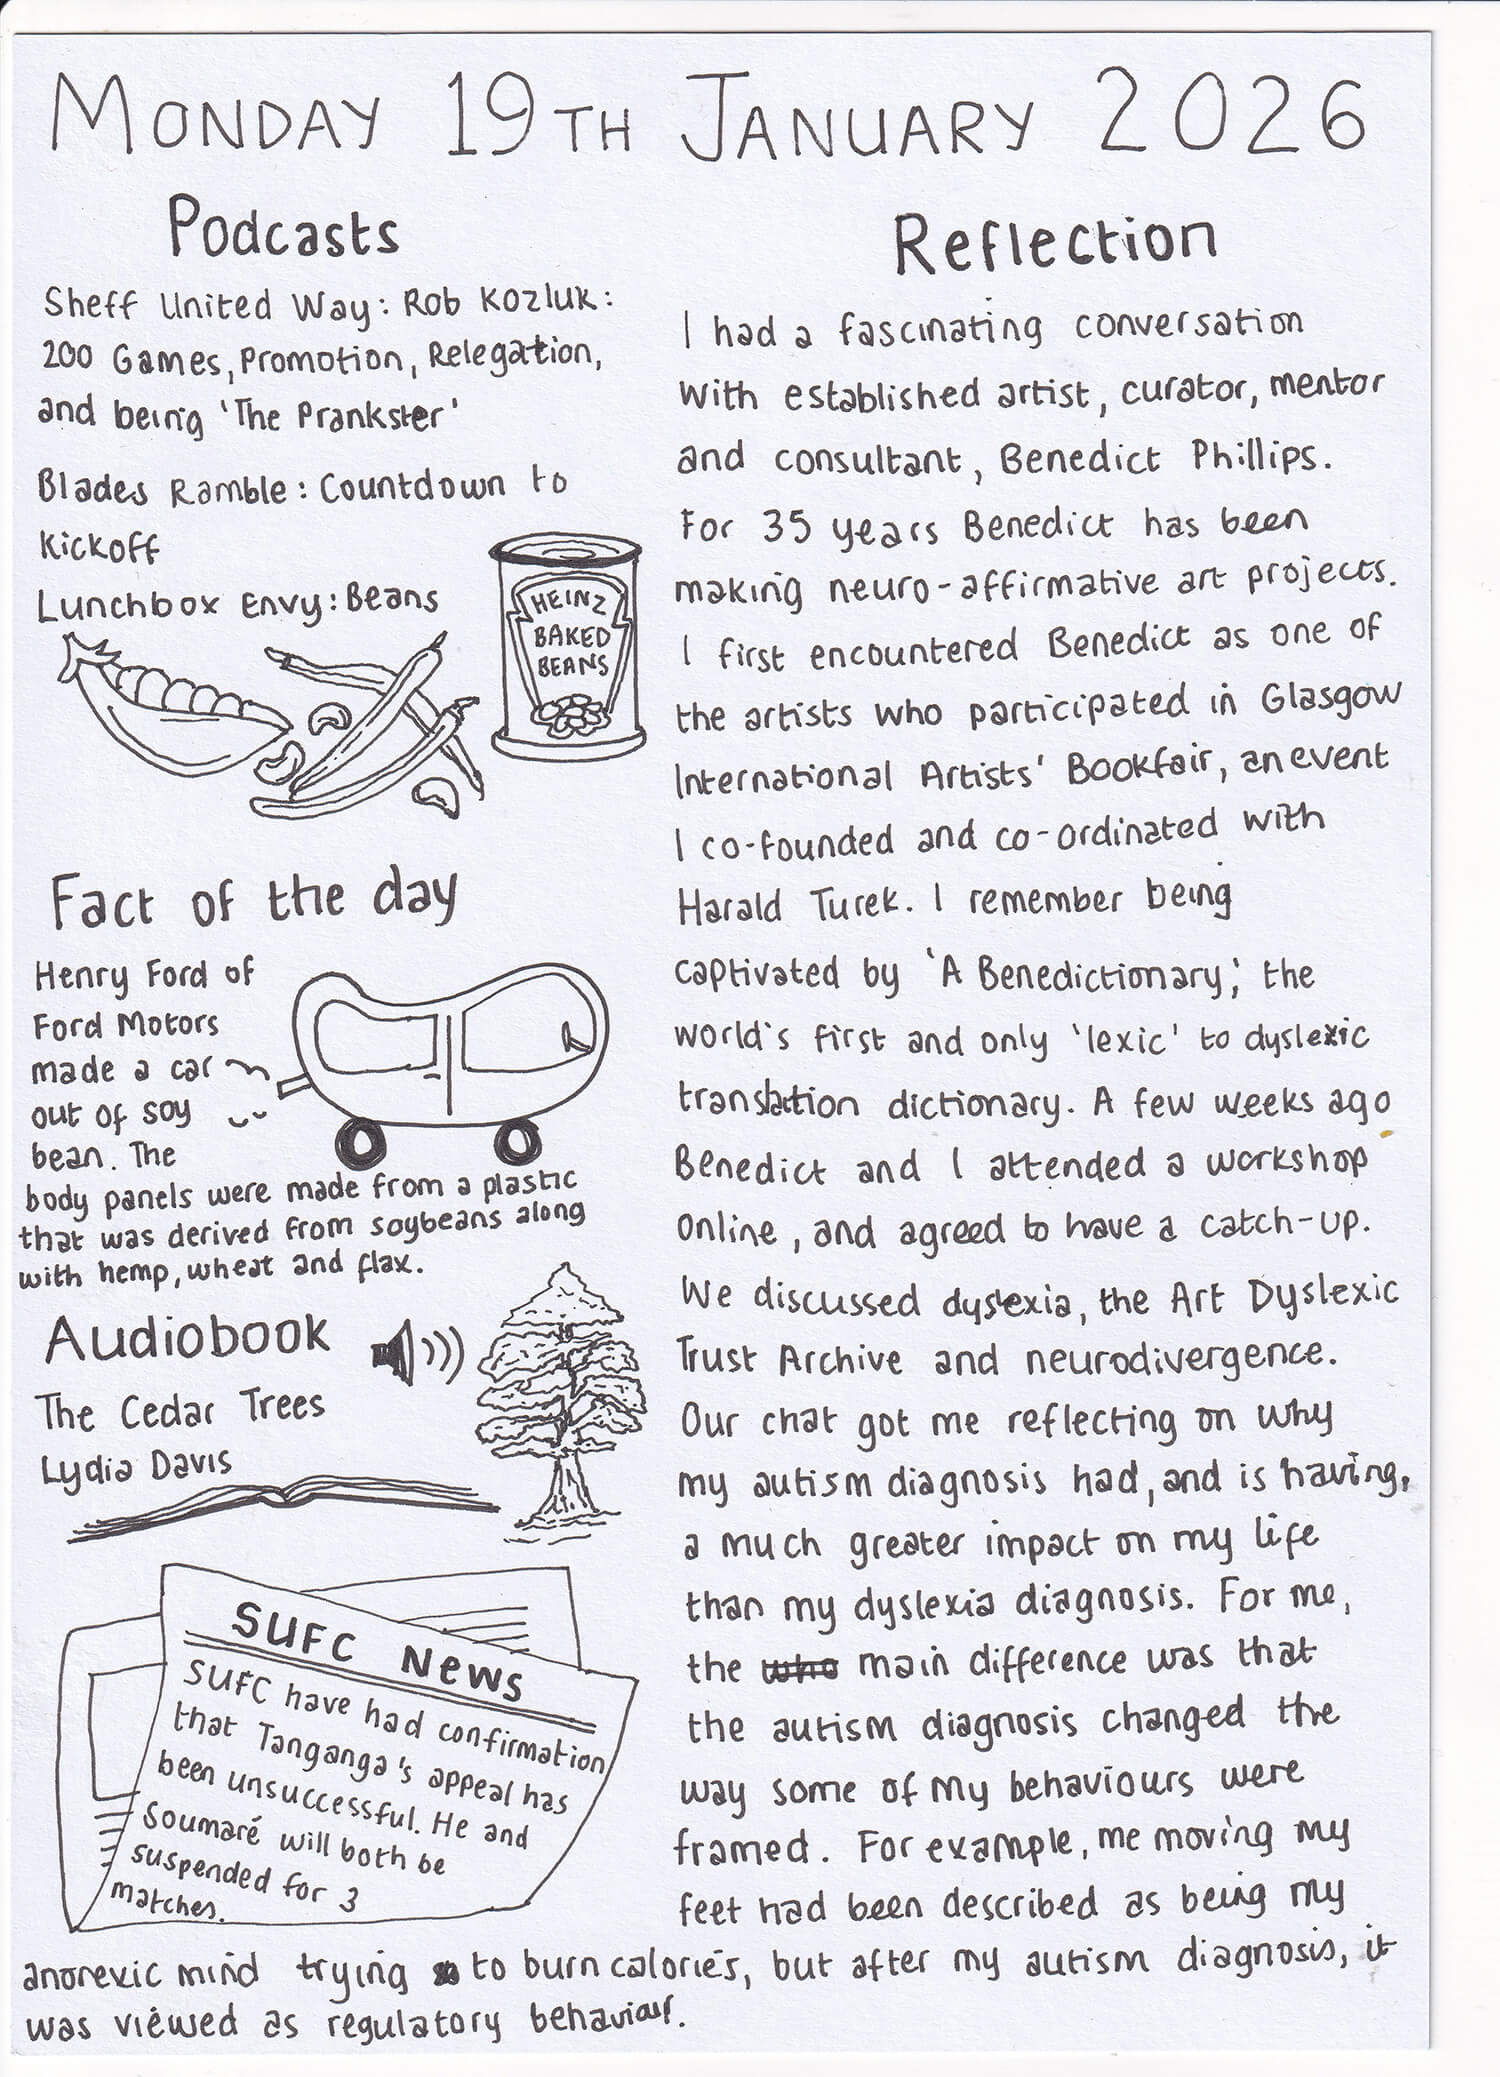 MONDAY 19TH JANUARY 2026
Podcasts
Sheff United Way: Rob Kozluk:
200 Games, Promotion, Relegation,
and being 'The Prankster'
Blades Ramble: Countdown to
Kickoff
Lunchbox Envy: Beans
HEINZ
BAKED
BEANS
Fact of the day
Henry Ford of
Ford Motors
made a car
out of soy
bean. The
body panels were made from a plastic
that was derived from soybeans along
with hemp, wheat and flax.
Audiobook
The Cedar Trees
Lydia Davis
SUFC News
SUFC have had confirmation
that Tanganga's appeal has
been unsuccessful. He and
Soumaré will both be
suspended for 3
matches.
Reflection
I had a fascinating conversation
with established artist, curator, mentor
and consultant, Benedict Phillips.
For 35 years Benedict has been
making neuro-affirmative art projects.
I first encountered Benedict as one of
the artists who participated in Glasgow
International Artists' Bookfair, an event
I co-founded and co-ordinated with
Harald Turek. I remember being
captivated by 'A Benedictionary', the
world's first and only 'lexic' to dyslexic
translation dictionary. A few weeks ago
Benedict and I attended a workshop
online, and agreed to have a catch-up.
We discussed dyslexia, the Art Dyslexic
Trust Archive and neurodivergence.
Our chat got me reflecting on why
my autism diagnosis had, and is having,
a much greater impact on my life
than my dyslexia diagnosis. For me,
the who main difference was that
the autism diagnosis changed the
way some of my behaviours were
framed. For example, me moving my
feet had been described as being my
anorexic mind trying to burn calories, but after my autism diagnosis, it
was viewed as regulatory behaviour.